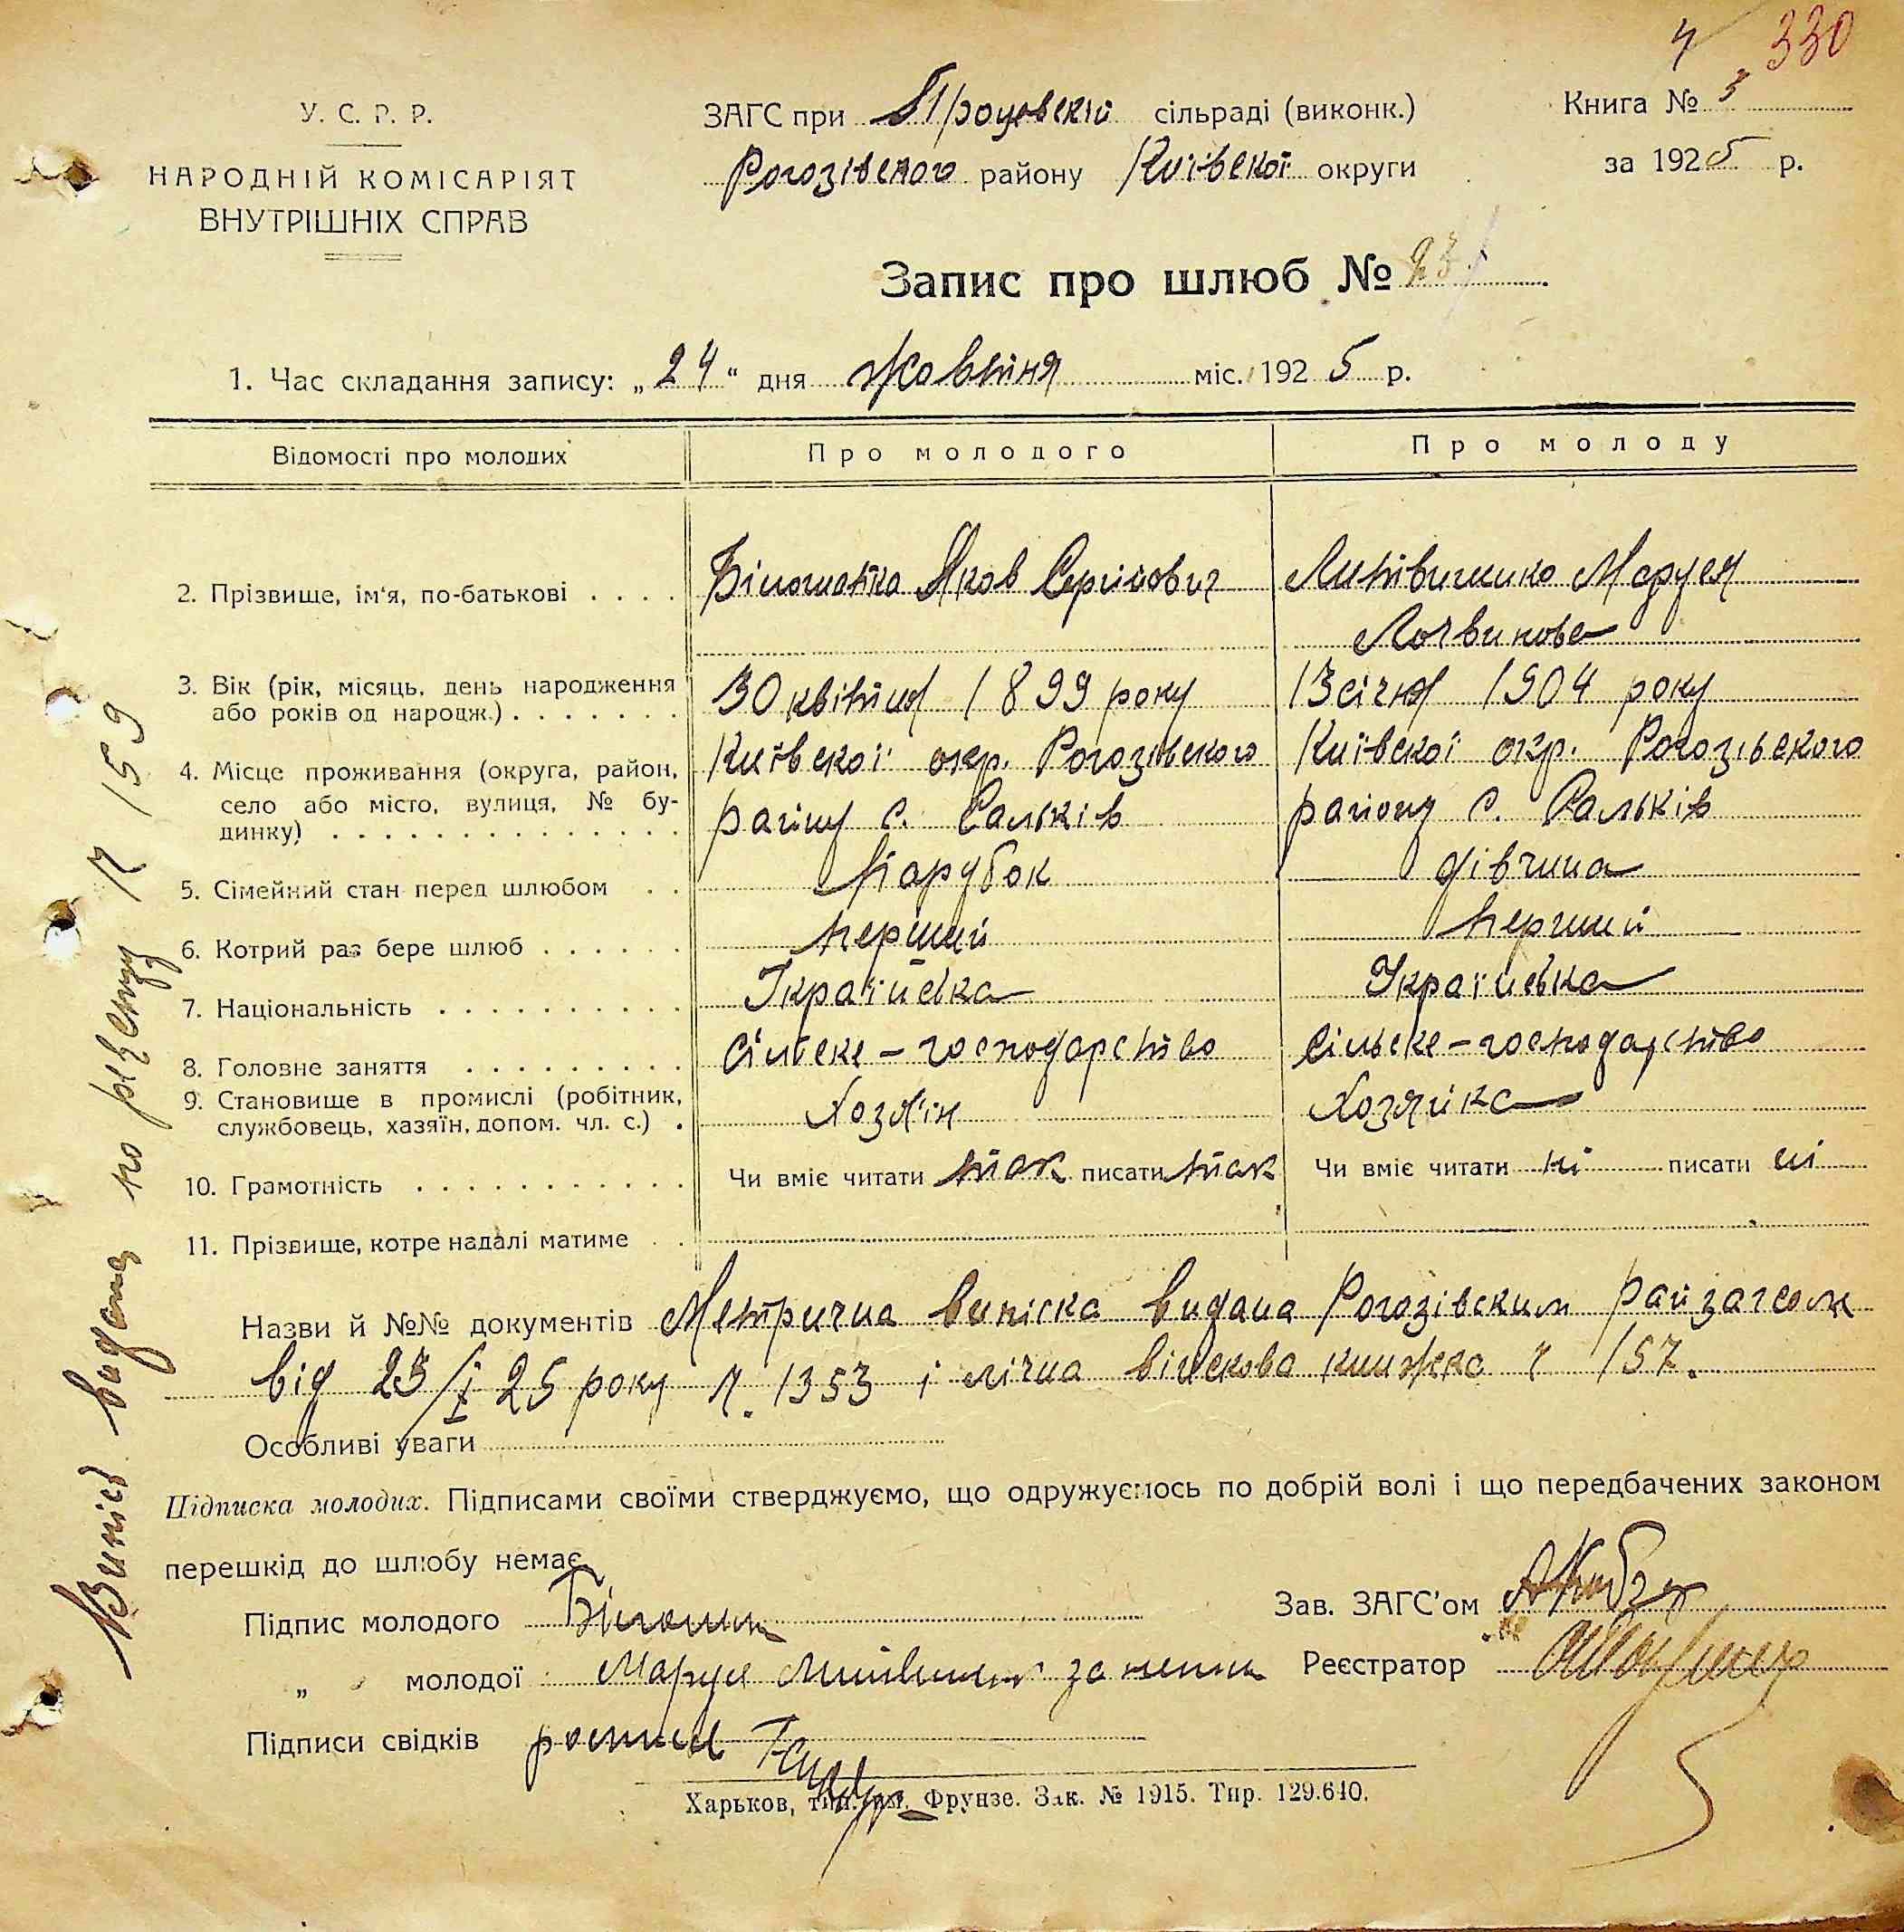 4 330
У. С. Р. Р.
НАРОДНІЙ КОМІСАРІЯТ
ВНУТРІШНІХ СПРАВ
ЗАГС при Процевскій сільраді (виконк.)
Рогозівского району Київскої округи
Книга № 3
за 1925 р.
Запис про шлюб № 231
1. Час складання запису: „24“ дня Жовтня міс. 1925 р.
Відомості про молодих Про молодого Про молоду
2. Прізвище, ім‘я, по-батькові . . . . Білошапка Яков Сергійович Литвиненко Маруся
Логвинова
3. Вік (рік, місяць, день народження
або років од народж.) . . . . . . . 30 квітня 1899 року 13 січня 1904 року
4. Місце проживання (округа, район,
село або місто, вулиця, № бу-
динку) . . . . . . . . . . . . . . .
Київскої окр. Рогозівского
району с. Сальків
Київскої окр. Рогозівского
району с. Сальків
5. Сімейний стан перед шлюбом . . Парубок дівчина
6. Котрий раз бере шлюб . . . . . . перший перший
7. Національність . . . . . . . . . . Українська Українська
8. Головне заняття . . . . . . . . . Сільске-господарство Сільске-господарство
9. Становище в промислі (робітник,
службовець, хазяїн, допом. чл. с.) . Хозяїн Хозяйка
10. Грамотність . . . . . . . . . . . Чи вміє читати так писати так Чи вміє читати ні писати ні
11. Прізвище, котре надалі матиме . .
Назви й №№ документів Метрична випіска видана Рогозівским райзагсом
від 25 року №. 1353 і лічна війскова книжка № 157.
Особливі уваги
Підписка молодих. Підписами своїми стверджуємо, що одружуємось по добрій волі і що передбачених законом
перешкід до шлюбу немає.
Підпис молодого Білошап
„ молодої Маруся за непи
Підписи свідків
Зав. ЗАГС'ом
Реєстратор
Харьков, тип. им. Фрунзе. Зак. № 1915. Тир. 129.640.
Випісь видана по реєстру № 159